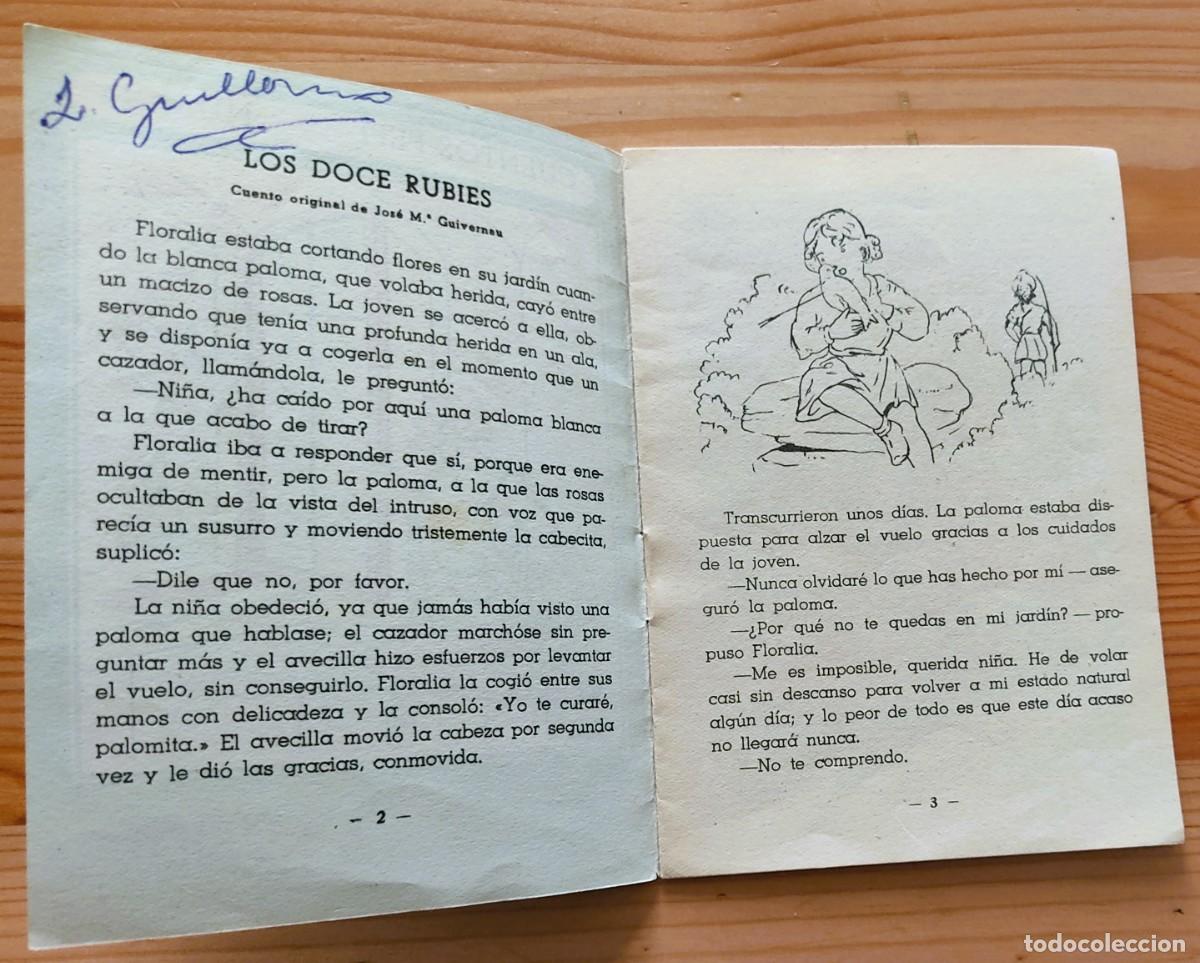 L. Guillermo
LOS DOCE RUBIES
Cuento original de José M.ª Guivernau
Floralia estaba cortando flores en su jardín cuan-
do la blanca paloma, que volaba herida, cayó entre
un macizo de rosas. La joven se acercó a ella, ob-
servando que tenía una profunda herida en un ala,
y se disponía ya a cogerla en el momento que un
cazador, llamándola, le preguntó:
—Niña, ¿ha caído por aquí una paloma blanca
a la que acabo de tirar?
Floralia iba a responder que sí, porque era ene-
miga de mentir, pero la paloma, a la que las rosas
ocultaban de la vista del intruso, con voz que pa-
recía un susurro y moviendo tristemente la cabecita,
suplicó:
—Dile que no, por favor.
La niña obedeció, ya que jamás había visto una
paloma que hablase; el cazador marchóse sin pre-
guntar más y el avecilla hizo esfuerzos por levantar
el vuelo, sin conseguirlo. Floralia la cogió entre sus
manos con delicadeza y la consoló: «Yo te curaré,
palomita.» El avecilla movió la cabeza por segunda
vez y le dió las gracias, conmovida.
— 2 —
Transcurrieron unos días. La paloma estaba dis-
puesta para alzar el vuelo gracias a los cuidados
de la joven.
—Nunca olvidaré lo que has hecho por mí — ase-
guró la paloma.
—¿Por qué no te quedas en mi jardín? — pro-
puso Floralia.
—Me es imposible, querida niña. He de volar
casi sin descanso para volver a mi estado natural
algún día; y lo peor de todo es que este día acaso
no llegará nunca.
—No te comprendo.
— 3 —
todocoleccion